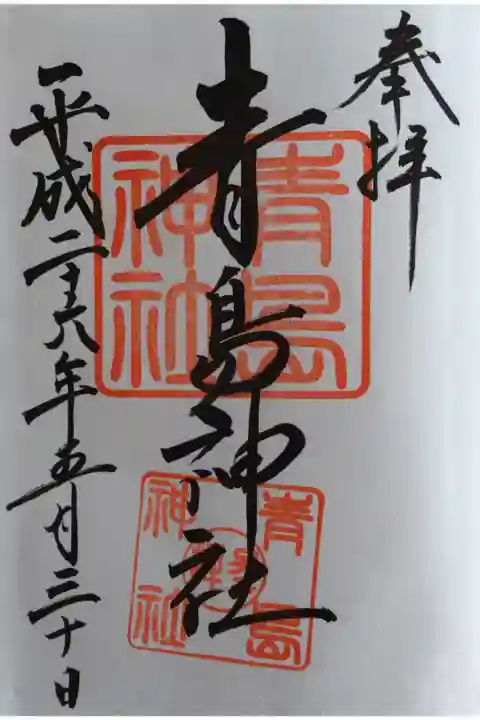 奉拝
青島神社
平成二十六年五月三十日
青島
神社
青島
神社